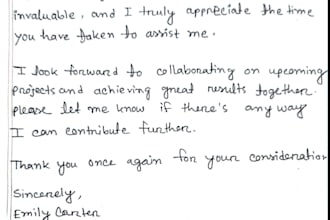 invaluable, and I truly appreciate the time
you have taken to assist me.
I look forward to collaborating on upcoming
projects and achieving great results together.
please let me know if there's any way
I can contribute further.
Thank you once again for your consideration
Sincerely,
Emily Carter